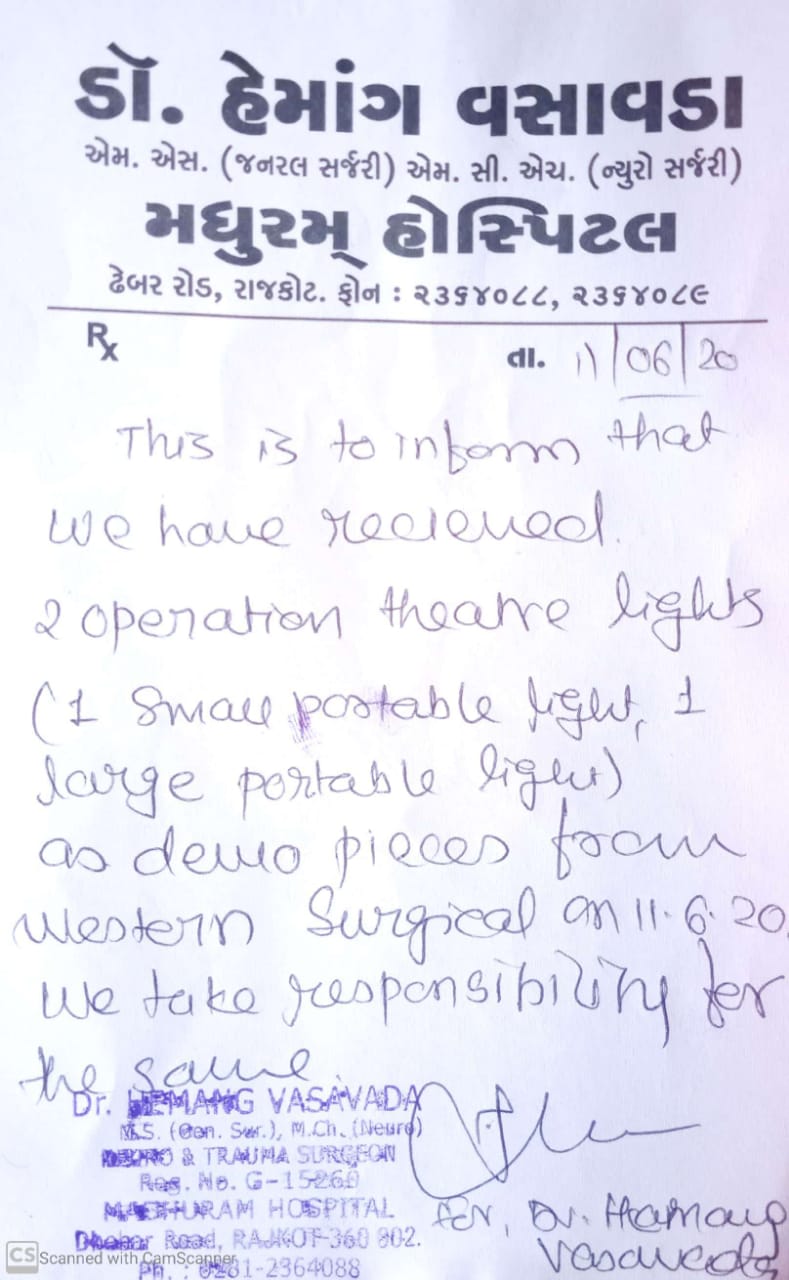 ડૉ. હેમાંગ વસાવડા
એમ. એસ. (જનરલ સર્જરી) એમ. સી. એચ. (ન્યુરો સર્જરી)
મધુરમ્ હોસ્પિટલ
ઢેબર રોડ, રાજકોટ. ફોન : ૨૩૬૪૦૮૮, ૨૩૬૪૦૮૯
Rx
તા. 11/06/20
This is to inform that
we have recieved.
2 operation theatre lights
(1 small portable light, 1
large portable light)
as demo pieces from
western Surgical on 11.6.20.
We take responsibility for
the same.
Dr. HEMANG VASAVADA
M.S. (Gen. Sur.), M.Ch. (Neuro)
NEURO & TRAUMA SURGEON
Reg. No. G-15260
MADHURAM HOSPITAL
Dhebar Road, RAJKOT-360 002.
Ph. : 0281-2364088
for, Dr. Hemang
Vasavada
CS Scanned with CamScanner